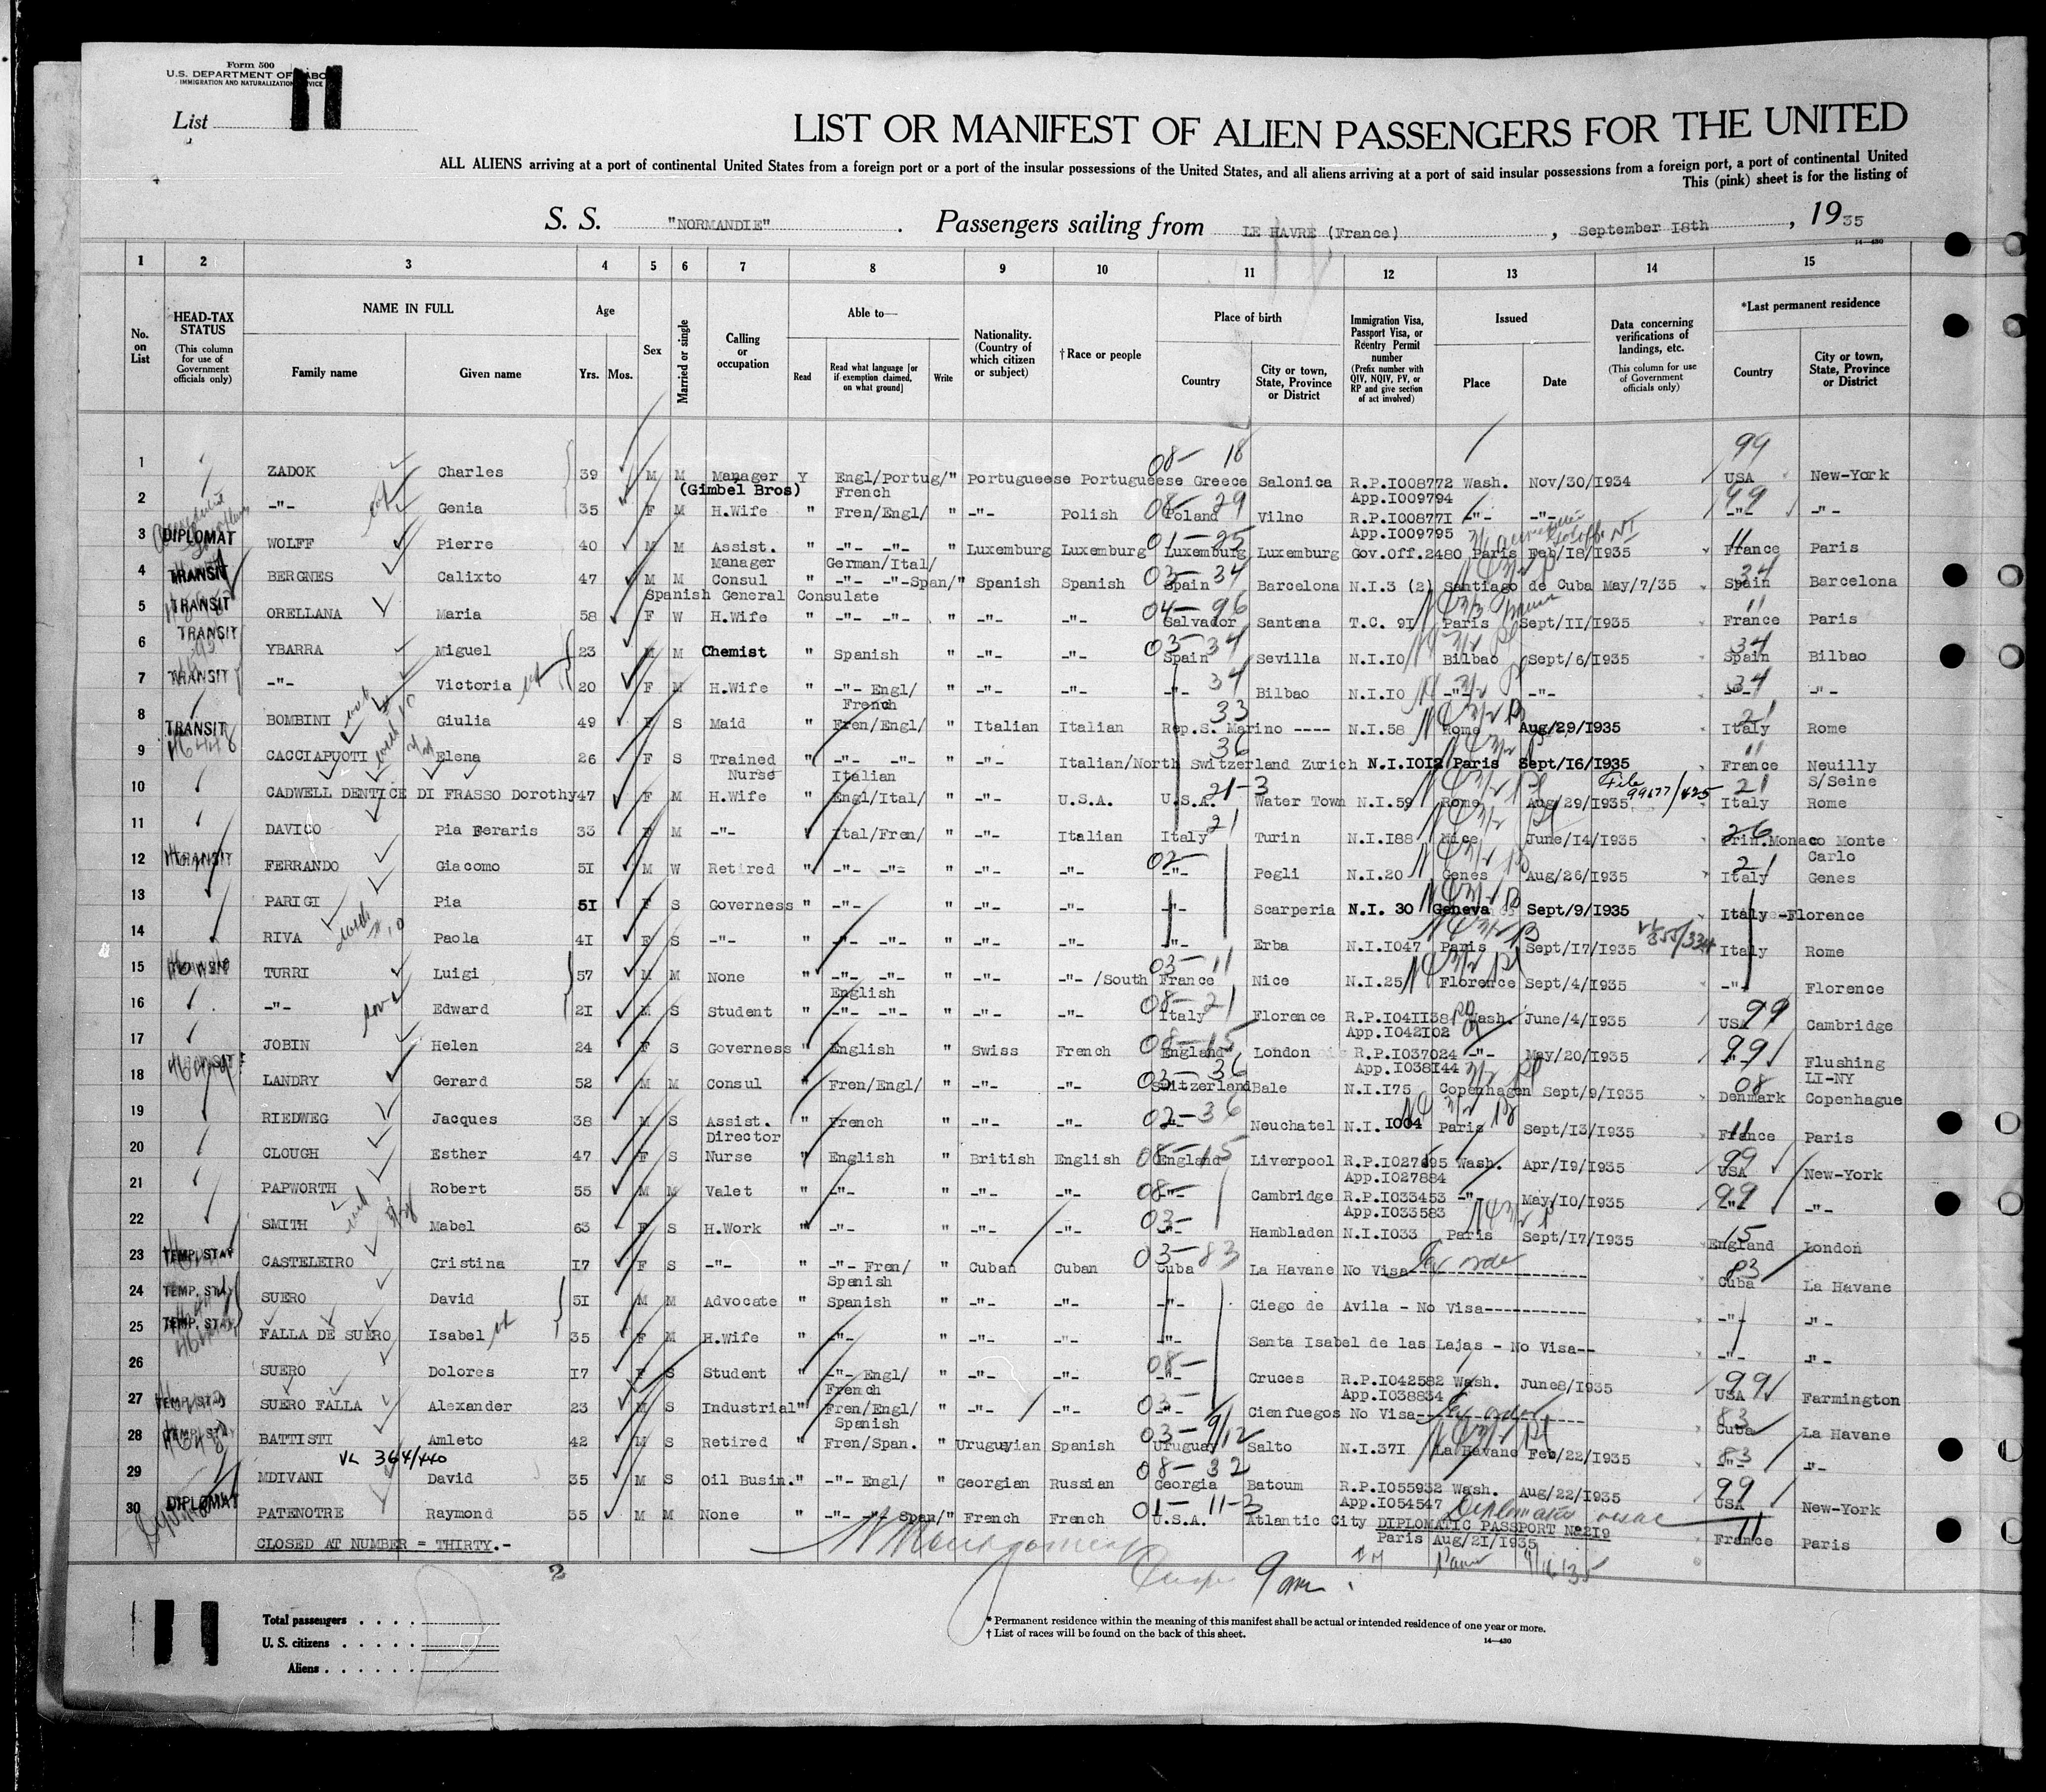 Form 500
U.S. DEPARTMENT OF LABOR
IMMIGRATION AND NATURALIZATION SERVICE
List 11
LIST OR MANIFEST OF ALIEN PASSENGERS FOR THE UNITED
ALL ALIENS arriving at a port of continental United States from a foreign port or a port of the insular possessions of the United States, and all aliens arriving at a port of said insular possessions from a foreign port, a port of continental United
This (pink) sheet is for the listing of
S. S. "NORMANDIE" . Passengers sailing from LE HAVRE (France) , September 18th , 1935
14—430
1 2 3 4 5 6 7 8 9 10 11 12 13 14 15
No. on List
HEAD-TAX STATUS (This column for use of Government officials only)
NAME IN FULL
Family name Given name
Age
Yrs. Mos.
Sex
Married or single
Calling or occupation
Able to—
Read Read what language [or if exemption claimed, on what ground] Write
Nationality. (Country of which citizen or subject)
† Race or people
Place of birth
Country City or town, State, Province or District
Immigration Visa, Passport Visa, or Reentry Permit number (Prefix number with QIV, NQIV, PV, or RP and give section of act involved)
Issued
Place Date
Data concerning verifications of landings, etc. (This column for use of Government officials only)
*Last permanent residence
Country City or town, State, Province or District
08- 18 99
1 ZADOK Charles 39 M M Manager Y Engl/Portug/" Portugueese Portugueese Greece Salonica R.P.I008772 Wash. Nov/30/I934 USA New-York
(Gimbel Bros) French App.I009794
2 -"- Genia 35 F M H.Wife " Fren/Engl/ " -"- Polish 08-29 Poland Vilno R.P.I00877I -"- -"- 99 -"- -"-
App.I009795
3 DIPLOMAT WOLFF Pierre 40 M M Assist. " -"- -"- " Luxemburg Luxemburg 01-25 Luxemburg Luxemburg Gov.Off.2480 Paris Feb/I8/I935 11 France Paris
Manager German/Ital/
4 TRANSIT BERGNES Calixto 47 M M Consul " -"- -"-Span/" Spanish Spanish 03-34 Spain Barcelona N.I.3 (2) Santiago de Cuba May/7/35 34 Spain Barcelona
Spanish General Consulate
5 TRANSIT ORELLANA Maria 58 F W H.Wife " -"- -"- " -"- -"- 04-96 Salvador Santana T.C. 9I Paris Sept/II/I935 11 France Paris
6 TRANSIT YBARRA Miguel 23 M M Chemist " Spanish " -"- -"- 03-34 Spain Sevilla N.I.I0 Bilbao Sept/6/I935 34 Spain Bilbao
7 TRANSIT -"- Victoria 20 F M H.Wife " -"- Engl/ " -"- -"- 34 -"- Bilbao N.I.I0 -"- -"- 34 -"- -"-
French
8 TRANSIT BOMBINI Giulia 49 F S Maid " Fren/Engl/ " Italian Italian 33 Rep.S. Marino ---- N.I.58 Rome Aug/29/I935 21 Italy Rome
9 CACCIAPUOTI Elena 26 F S Trained " -"- -"- " -"- Italian/North 36 Switzerland Zurich N.I.I0I2 Paris Sept/I6/I935 11 France Neuilly
Nurse Italian S/Seine
10 CADWELL DENTICE DI FRASSO Dorothy 47 F M H.Wife " Engl/Ital/ " -"- U.S.A. 21-3 U.S.A. Water Town N.I.59 Rome Aug/29/I935 File 99677/425 21 Italy Rome
11 DAVICO Pia Feraris 33 F M -"- Ital/Fren/ " -"- Italian 21 Italy Turin N.I.I88 Nice June/I4/I935 26 Prin.Monaco Monte
Carlo
12 TRANSIT FERRANDO Giacomo 5I M W Retired " -"- -"- " -"- -"- 02- -"- Pegli N.I.20 Genes Aug/26/I935 21 Italy Genes
13 PARIGI Pia 5I F S Governess " -"- " -"- -"- -"- Scarperia N.I. 30 Geneva Sept/9/I935 Italy -Florence
14 RIVA Paola 4I F S -"- " -"- -"- " -"- -"- -"- Erba N.I.I047 Paris Sept/I7/I935 Italy Rome
15 TURRI Luigi 57 M M None " -"- -"- " -"- -"- /South 03-11 France Nice N.I.25 Florence Sept/4/I935 -"- Florence
English
16 -"- Edward 2I M S Student " -"- -"- " -"- -"- 08-21 Italy Florence R.P.I04II38 Wash. June/4/I935 99 USA Cambridge
App.I042I02
17 JOBIN Helen 24 F S Governess " English " Swiss French 08-15 England London R.P.I037024 -"- May/20/I935 99 -"- Flushing
App.I038I44 LI-NY
18 LANDRY Gerard 52 M M Consul " Fren/Engl/ " -"- -"- 03-36 Switzerland Bale N.I.I75 Copenhagen Sept/9/I935 08 Denmark Copenhague
19 RIEDWEG Jacques 38 M S Assist. " French " -"- -"- 02-36 -"- Neuchatel N.I.I004 Paris Sept/I3/I935 11 France Paris
Director
20 CLOUGH Esther 47 F S Nurse " English " British English 08-15 England Liverpool R.P.I027695 Wash. Apr/I9/I935 99 USA New-York
App.I027884
21 PAPWORTH Robert 55 M M Valet " -"- " -"- -"- 08- -"- Cambridge R.P.I033453 -"- May/I0/I935 99 -"- -"-
App.I033583
22 SMITH Mabel 63 F S H.Work " -"- " -"- -"- 03- -"- Hambladen N.I.I033 Paris Sept/I7/I935 15 England London
23 TEMP. STAY CASTELEIRO Cristina I7 F S -"- " -"- Fren/ " Cuban Cuban 03-83 Cuba La Havane No Visa 83 Cuba La Havane
Spanish
24 TEMP. STAY SUERO David 5I M M Advocate " Spanish " -"- -"- -"- Ciego de Avila - No Visa------------ -"- -"-
25 TEMP. STAY FALLA DE SUERO Isabel 35 F M H.Wife " -"- " -"- -"- -"- Santa Isabel de las Lajas - No Visa-- -"- -"-
26 SUERO Dolores I7 F S Student " -"- Engl/ " -"- -"- 08- -"- Cruces R.P.I042582 Wash. June8/I935 99 USA Farmington
French App.I038834
27 TEMP. STAY SUERO FALLA Alexander 23 M S Industrial" Fren/Engl/ " -"- -"- 03- -"- Cienfuegos No Visa 83 Cuba La Havane
Spanish
28 BATTISTI Amleto 42 M S Retired " Fren/Span. " Uruguyian Spanish 03-9/12 Uruguay Salto N.I.37I La Havane Feb/22/I935 83 -"- -"-
VL 364/440
29 MDIVANI David 35 M S Oil Busin." -"- Engl/ " Georgian Russian 08-32 Georgia Batoum R.P.I055932 Wash. Aug/22/I935 99 USA New-York
App.I054547
30 DIPLOMAT PATENOTRE Raymond 35 M M None " -"- -"- Span/" French French 01-11-3 U.S.A. Atlantic City DIPLOMATIC PASSPORT No2I9 11 France Paris
Paris Aug/2I/I935
CLOSED AT NUMBER = THIRTY.-
2
11
Total passengers . . . .
U. S. citizens . . . . .
Aliens . . . . . .
* Permanent residence within the meaning of this manifest shall be actual or intended residence of one year or more.
† List of races will be found on the back of this sheet.
14—430